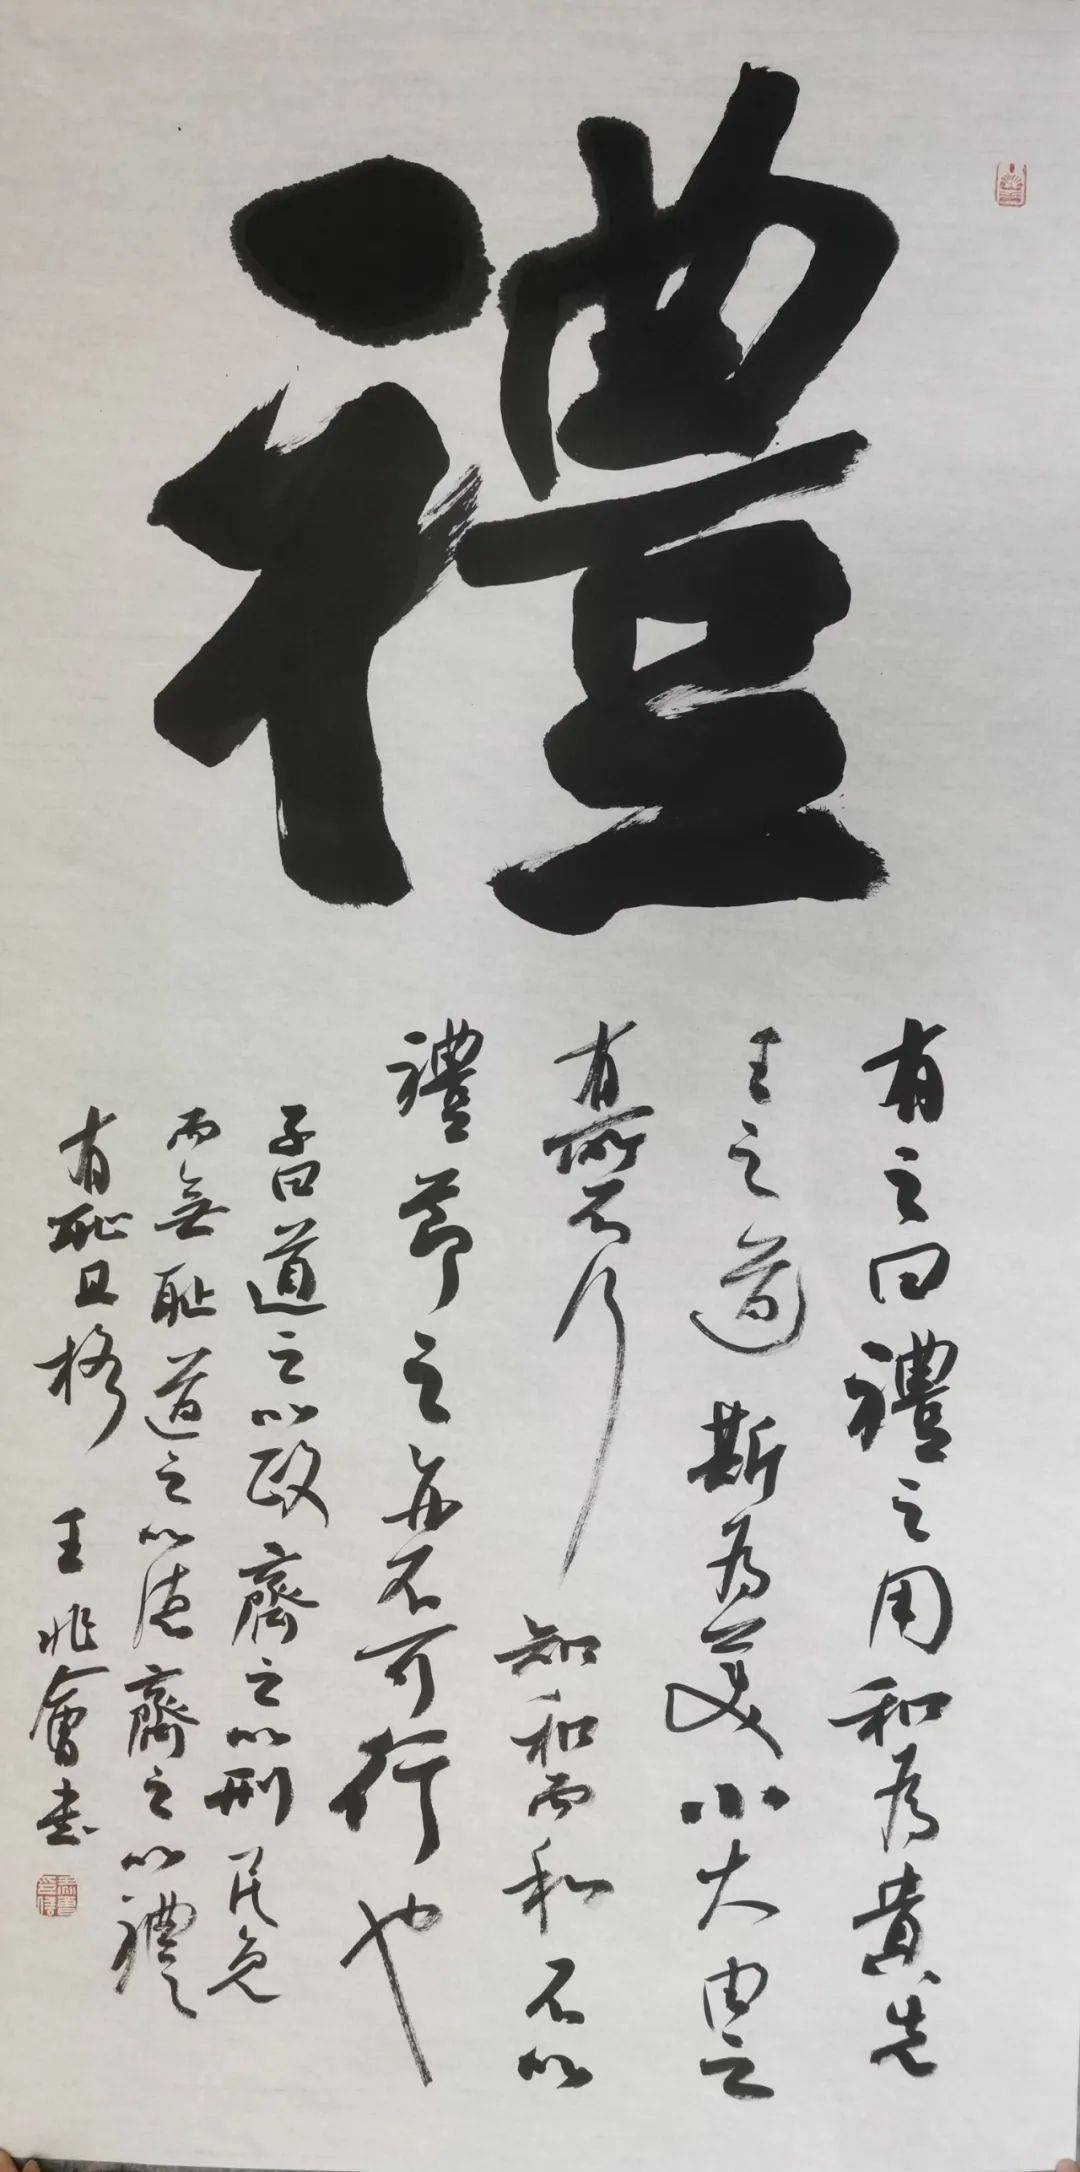 禮
有之曰禮之用和為貴先
王之道斯為美小大由之
有所不行知和而和不以
禮節之亦不可行也
子曰道之以政齊之以刑民免
而無恥道之以德齊之以禮
有恥且格 王兆會書